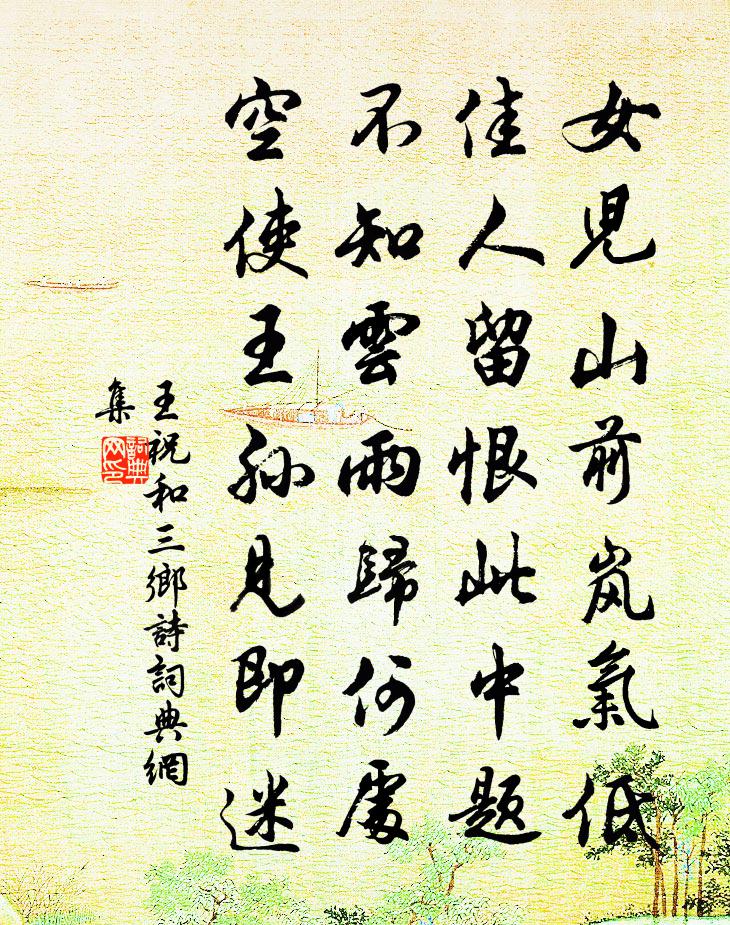 女兒山前岚氣低
佳人留恨此中題
不知雲雨歸何處
空使王孙見即迷
王祝和三鄉詩詞典網
集
詞典
网印